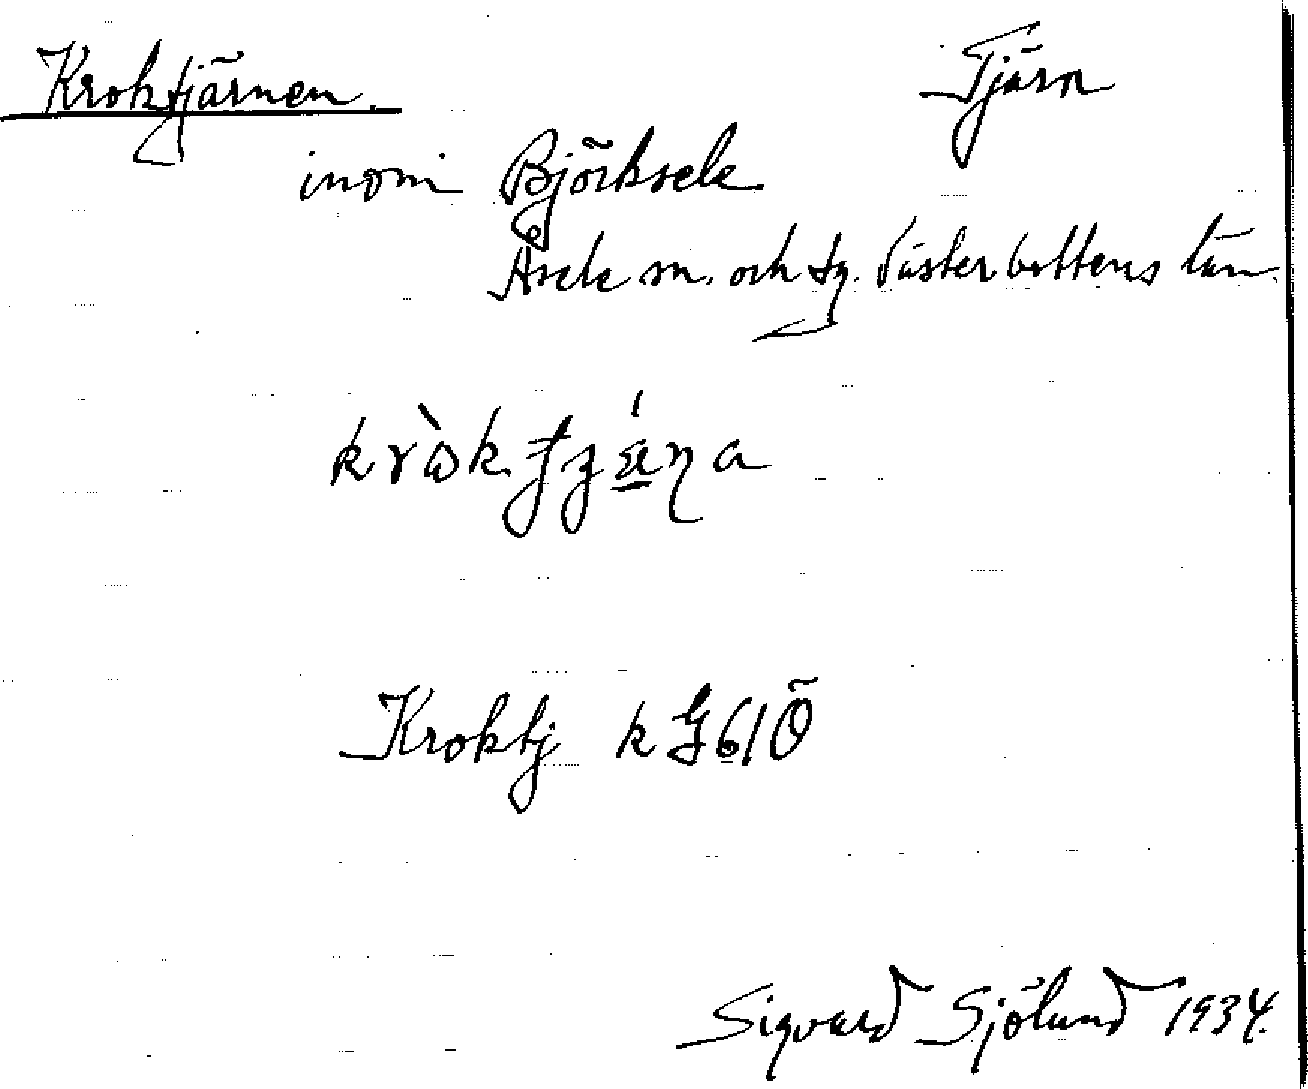 Kroktjärnen. Tjärn
inom Björksele
Åsele sn. och tg. Västerbottens län.
Kroktj k G61Ö
Sigvard Sjölund 1934.